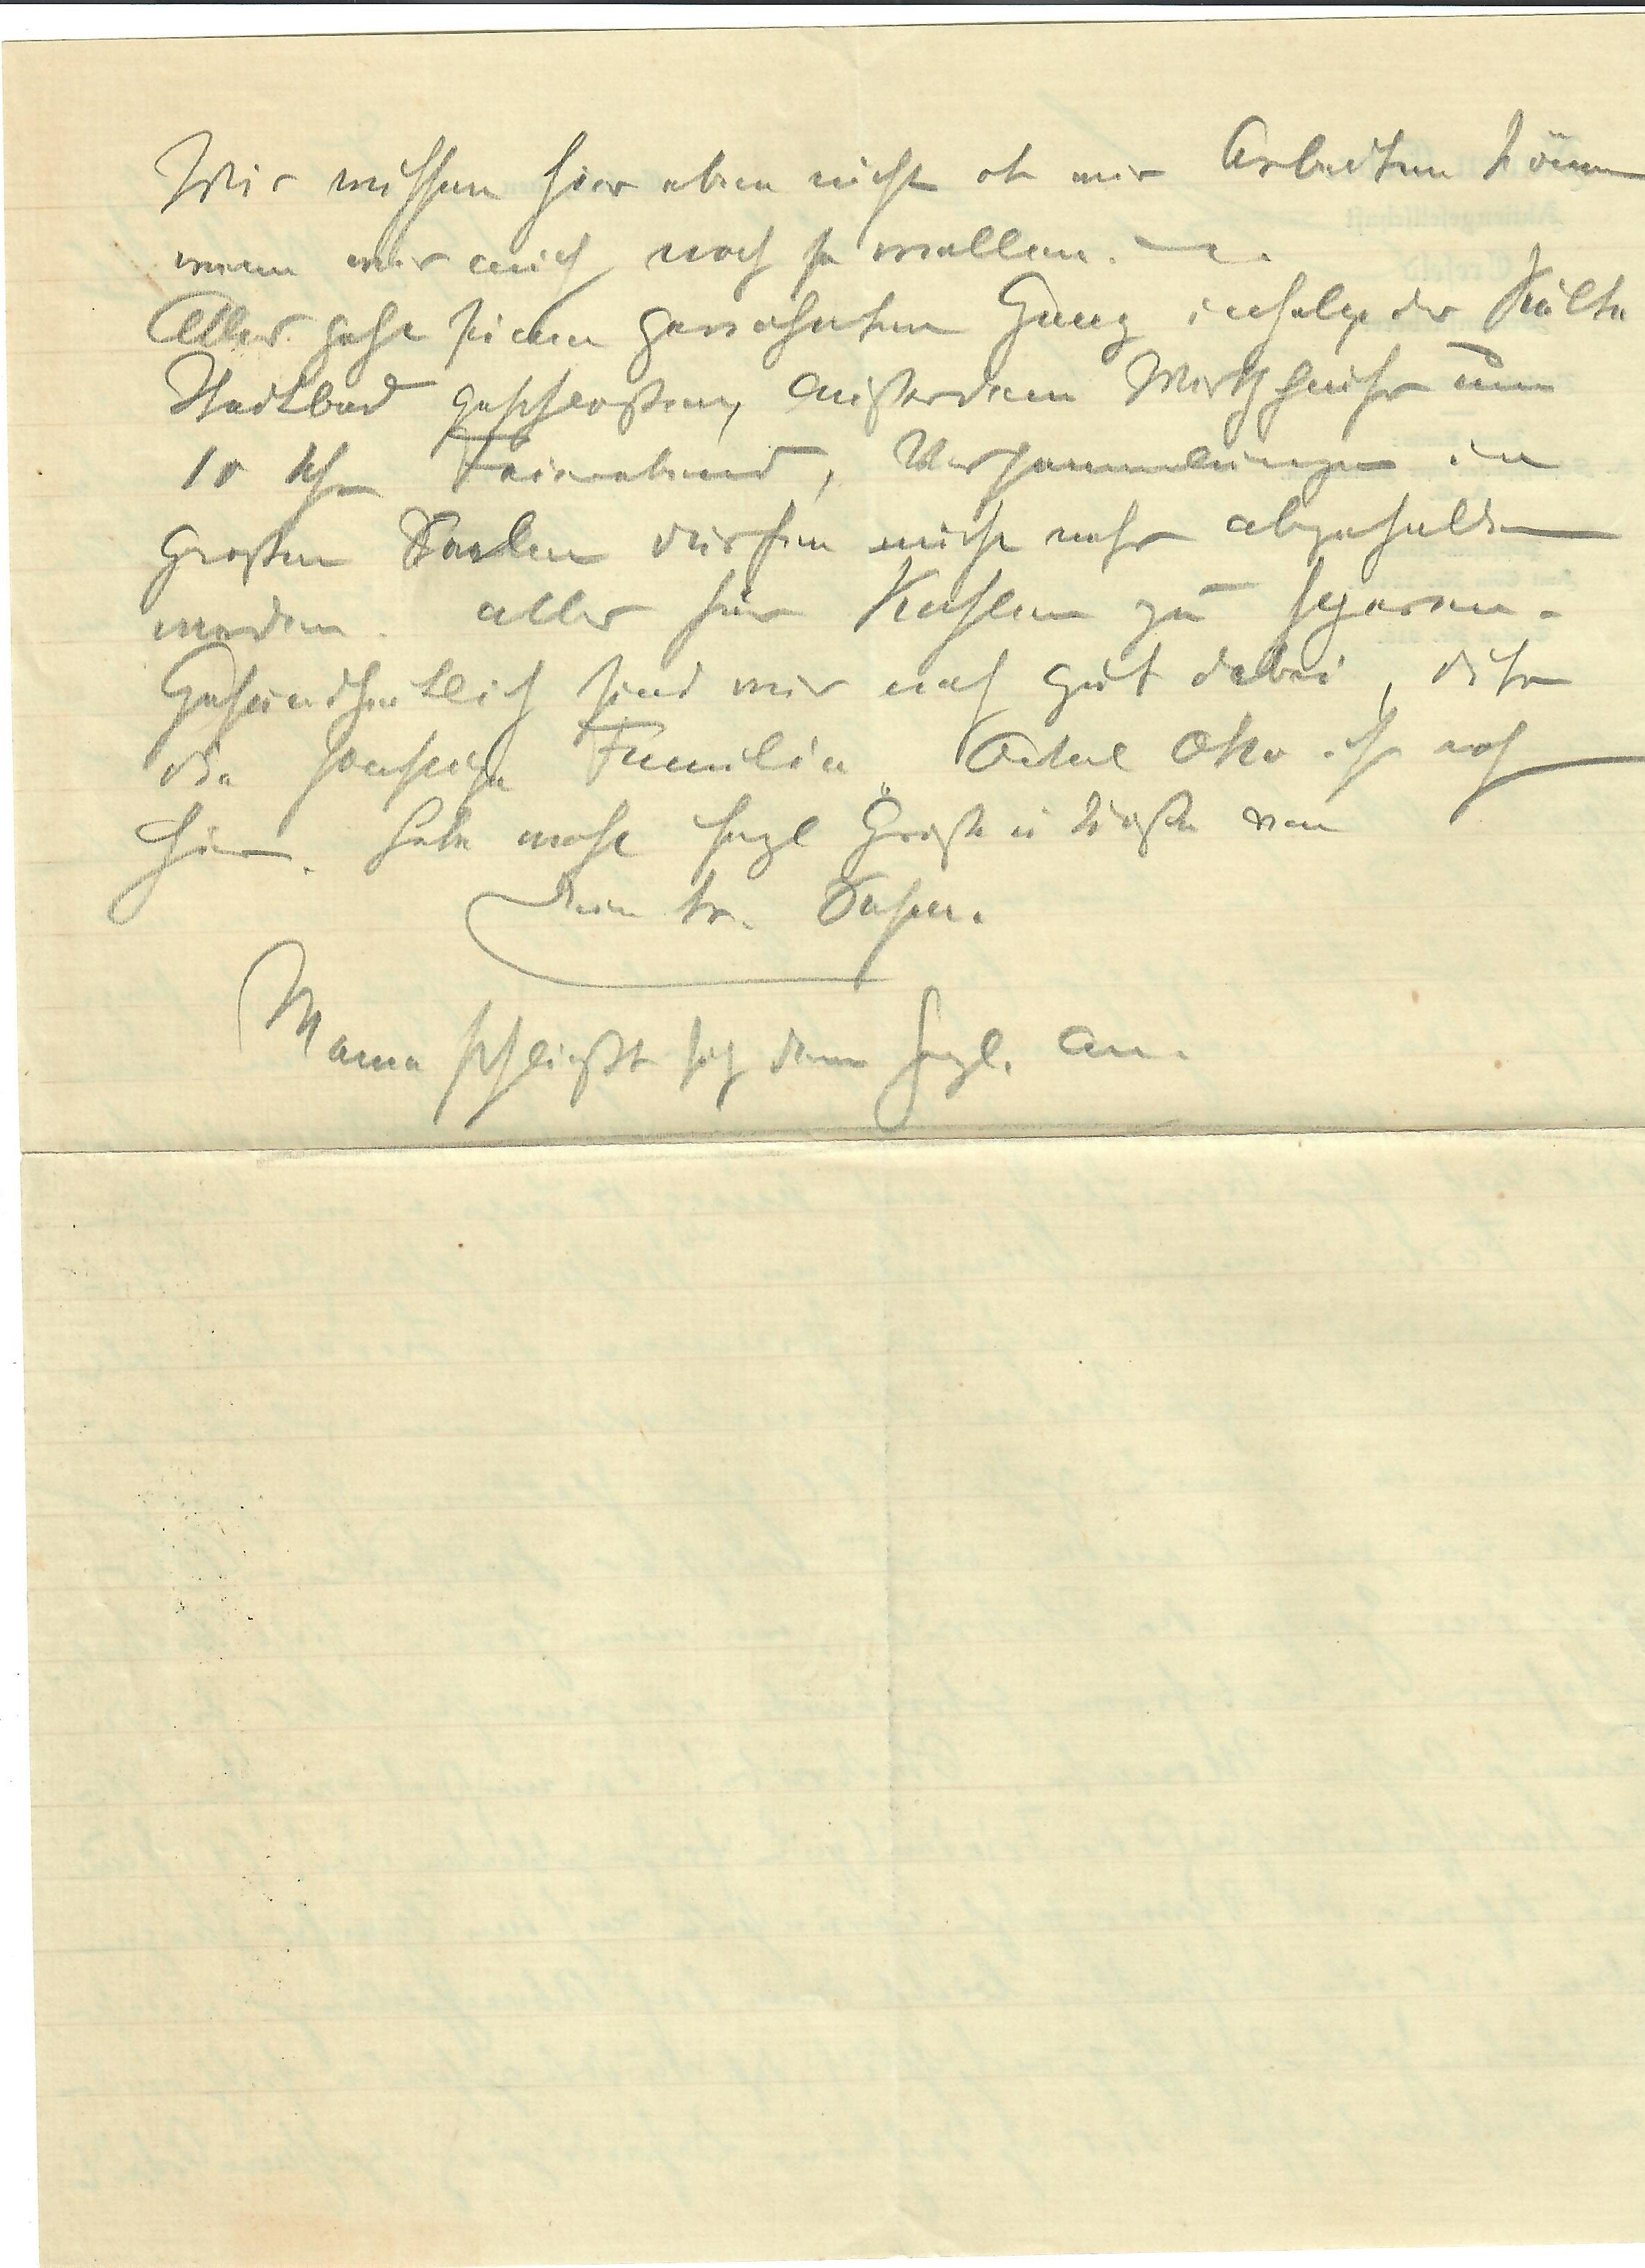 Wir wissen hier eben nicht ob wir Arbeiten können
wenn wir auch noch so wollen.
Alles geht seinen gewohnten Gang infolge der Kälte
Stadtbad geschlossen, außerdem Wirtshäuser um
10 Uhr Feierabend, Versammlungen in
großen Saalen dürfen nicht mehr abgehalten
werden. alles für Kohlen zu sparen.
Gesundheitlich sind wir noch gut dabei, dito
die sonstige Familie. Onkel Otto ist noch
hier. Lebe wohl herzl Grüße u Küße von
Dein tr. Vater.
Mama schließt sich dem herzl. an.
Aktiengesellschaft
Crefeld